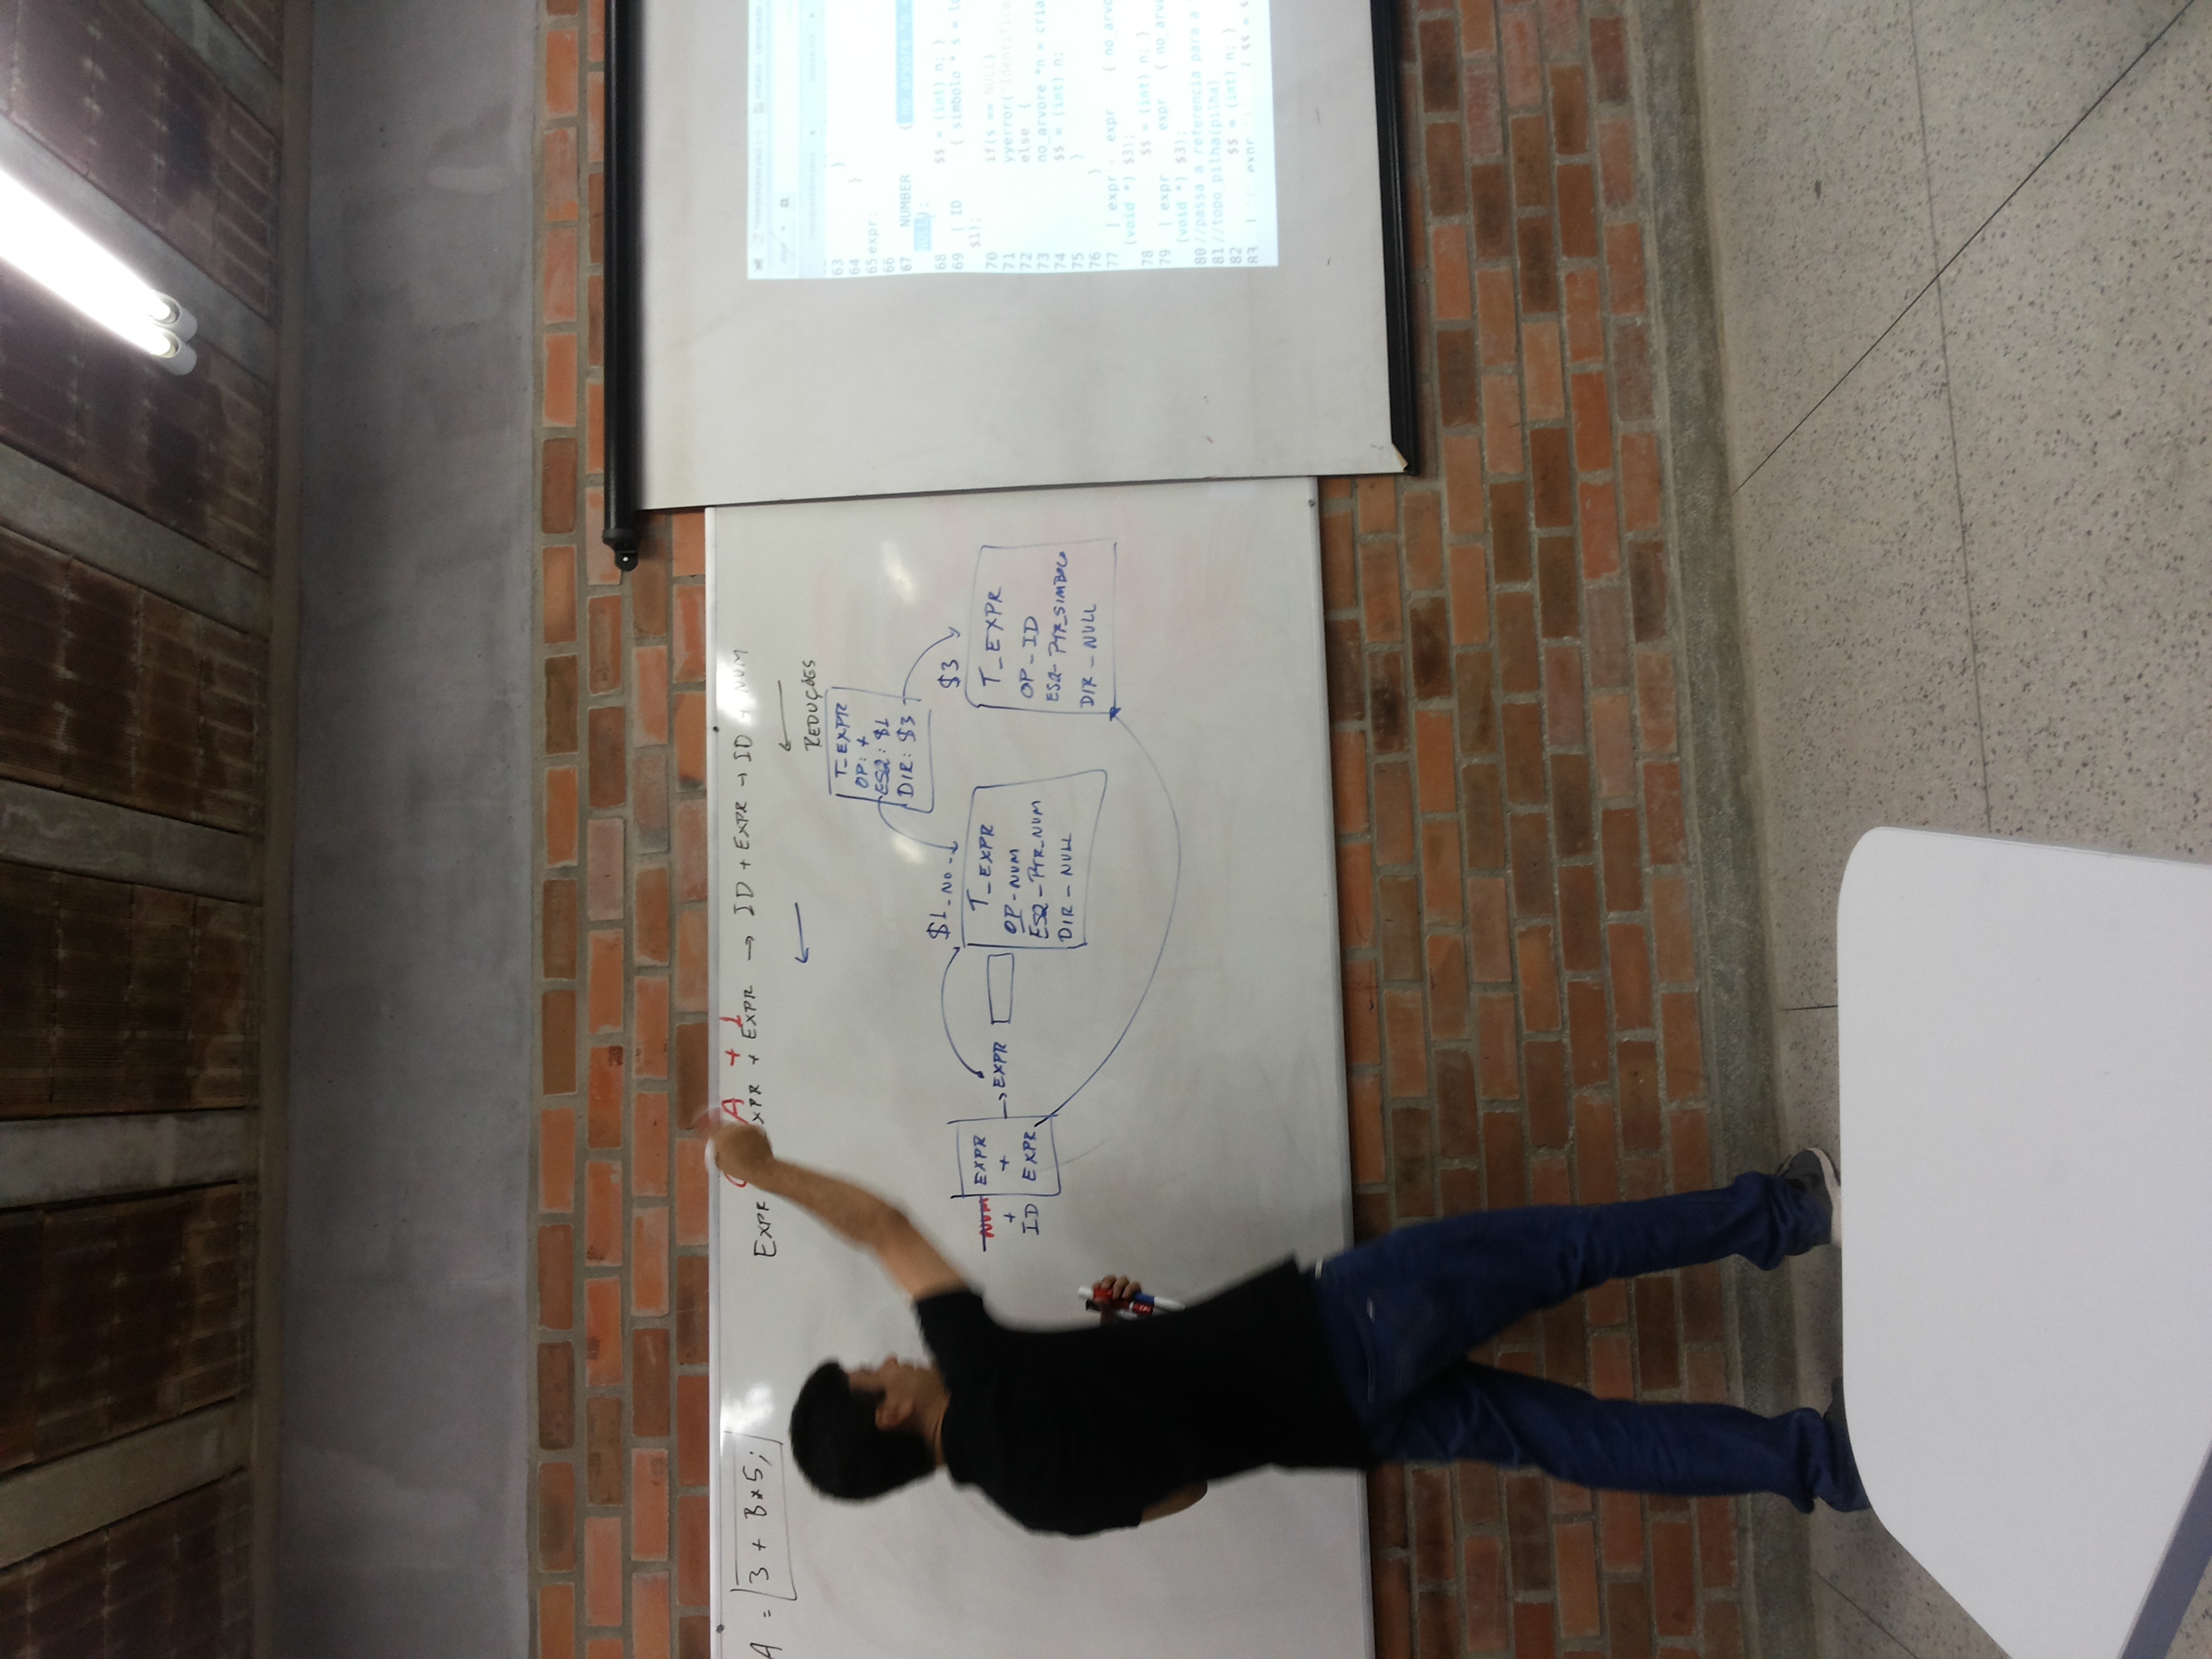 A = 3 + B*5;
A + 1
EXPR + EXPR → ID + EXPR → ID + NUM
REDUÇÕES
T_EXPR
OP: +
ESQ: $1
DIR: $3
$1_NO
$3
NUM
+
ID
EXPR
+
EXPR
EXPR
T_EXPR
OP-NUM
ESQ-PTR_NUM
DIR-NULL
T_EXPR
OP-ID
ESQ-PTR_SIMBOLO
DIR-NULL
63 }
64 }
65 expr:
66
67 NUMBER { no_arvore *n =
NULL);
68 $$ = (int) n; }
69 | ID { simbolo * s =
$1);
70 if(s == NULL)
71 yyerror("Identifica
72 else {
73 no_arvore *n = cria
74 $$ = (int) n;
75 }
76 }
77 | expr expr { no_arvo
(void *) $3);
78 $$ = (int) n; }
79 | expr expr { no_arvo
(void *) $3);
80 //passa a referencia para a
81 //topo_pilha(pilha)
82 $$ = (int) n; }
83 | '(' expr { $$ =